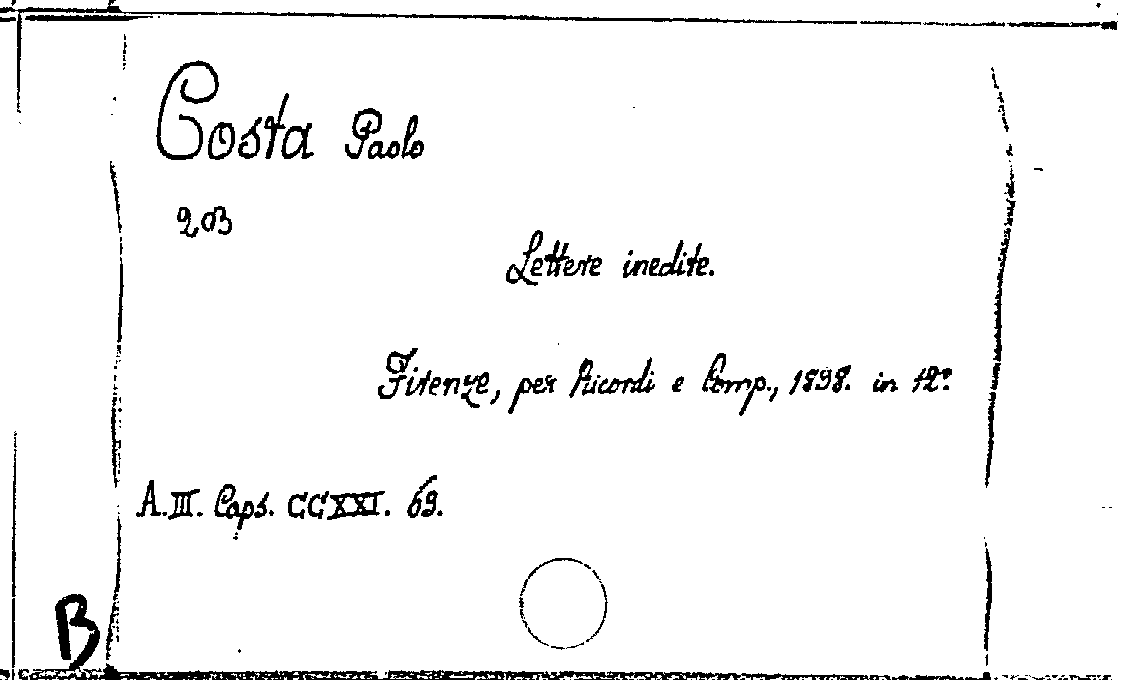 Costa Paolo
203
Lettere inedite.
Firenze, per Ricordi e Comp., 1898. in 12°.
A.III. Caps. CCXXI. 69.
B